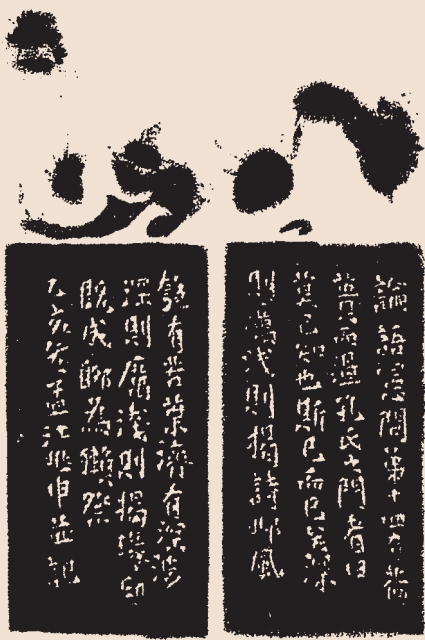 論語憲問第十四有荷
蕢而過孔氏之門者曰
莫己知也斯已而已矣深
則厲淺則揭詩邶風
匏有苦葉濟有深涉
深則厲淺則揭印
既成聊為獺祭
乙亥冬孟江兆申記